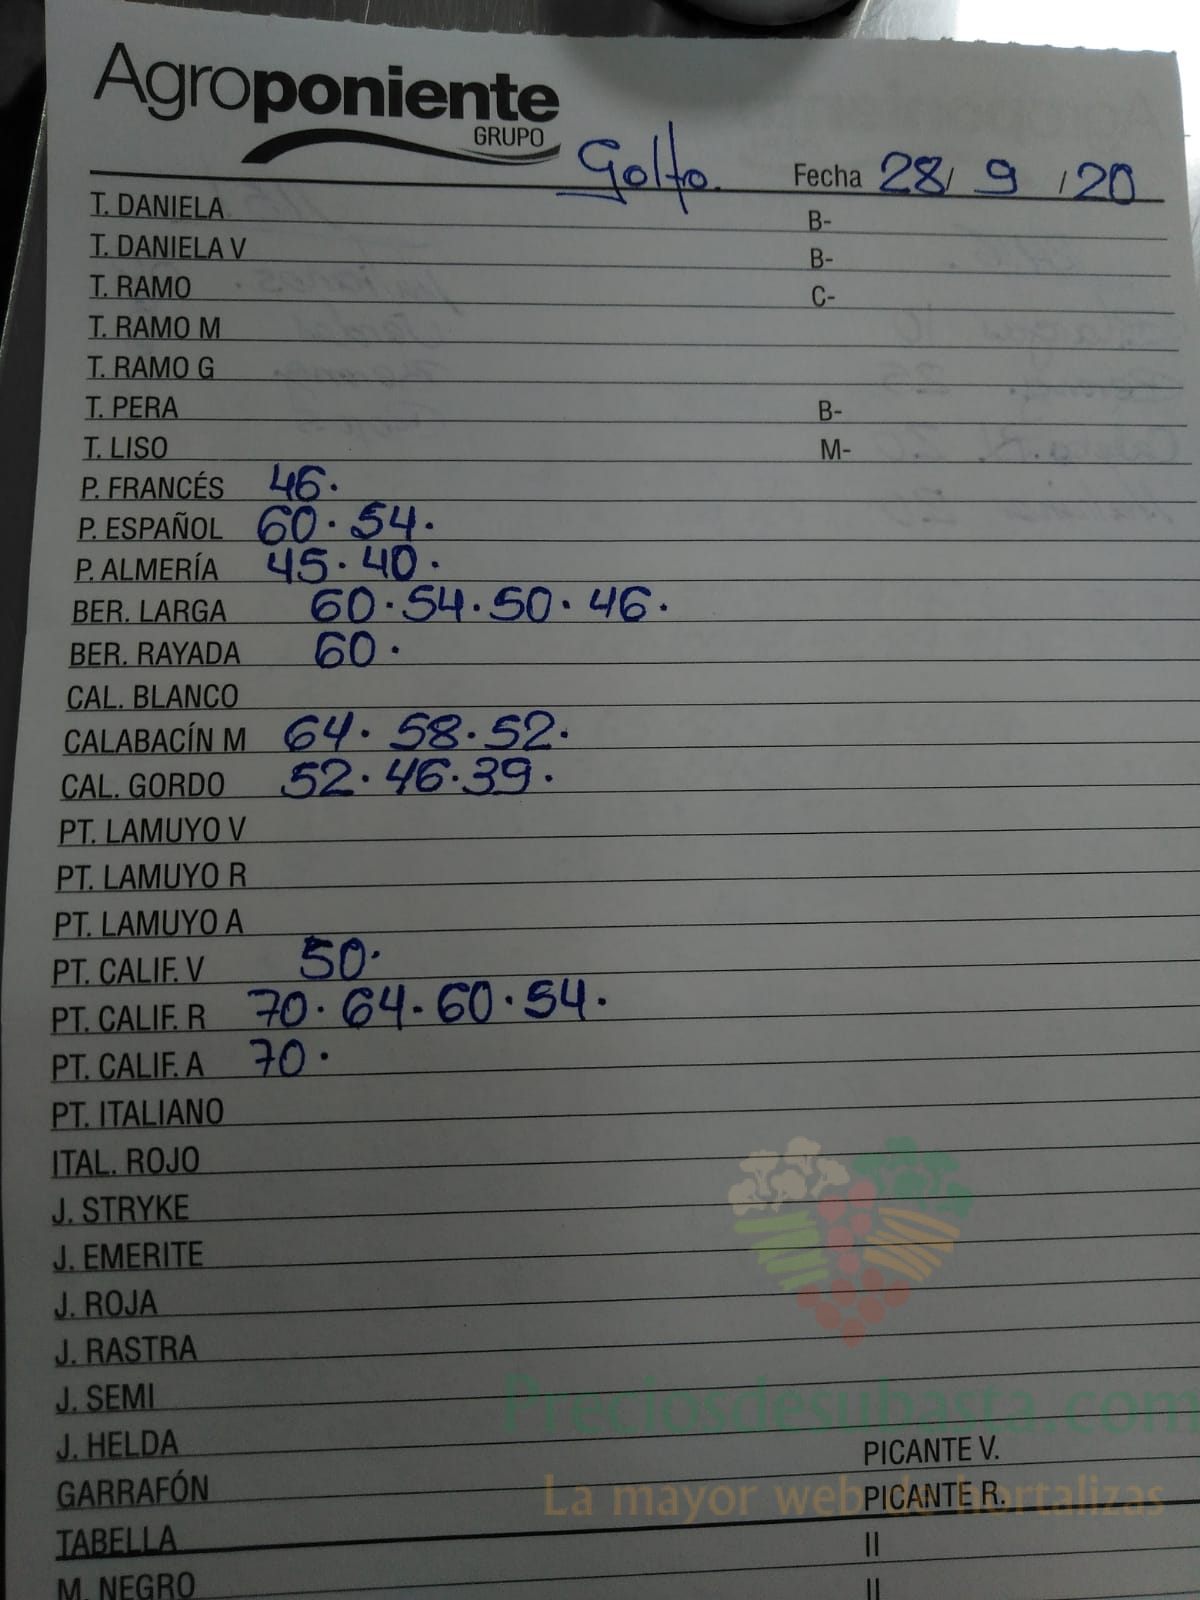 Agroponiente
GRUPO
Golfo. Fecha 28/ 9 /20
T. DANIELA B-
T. DANIELA V B-
T. RAMO C-
T. RAMO M
T. RAMO G
T. PERA B-
T. LISO M-
P. FRANCÉS 46.
P. ESPAÑOL 60. 54.
P. ALMERÍA 45. 40.
BER. LARGA 60. 54. 50. 46.
BER. RAYADA 60.
CAL. BLANCO
CALABACÍN M 64. 58. 52.
CAL. GORDO 52. 46. 39.
PT. LAMUYO V
PT. LAMUYO R
PT. LAMUYO A
PT. CALIF. V 50.
PT. CALIF. R 70. 64. 60. 54.
PT. CALIF. A 70.
PT. ITALIANO
ITAL. ROJO
J. STRYKE
J. EMERITE
J. ROJA
J. RASTRA
J. SEMI
Preciosdesubasta.com
J. HELDA PICANTE V.
GARRAFÓN PICANTE R.
La mayor web de hortalizas
TABELLA II
M. NEGRO II